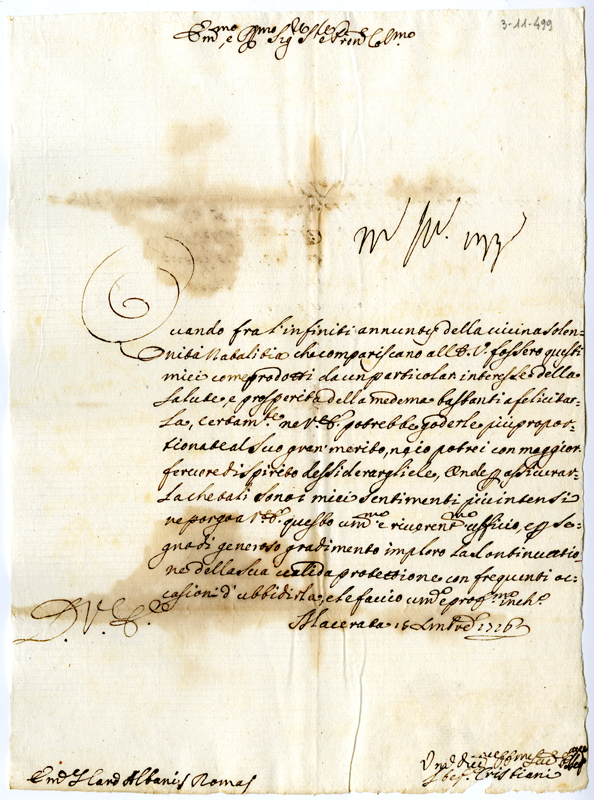 3-11-499
Em.mo e Sig.
Quando fra l'infiniti annuntij della vicina solen=
nità Natalitia che compariscano all'E. V. fossero questi
miei come prodotti da un particolar interesse della
salute, e prosperità della medema bastanti a felicitar=
la, certam.te ne V. E. potrebbe goderle più propor=
tionate al suo gran merito, ne io potrei con maggior
fervore di spirito dessiderargliele, Onde assicurar=
la che tali sono i miei sentimenti più intensi
ne porgo a V. E. questo um.mo e riveren.mo ufficio, e se=
gno di generoso gradimento imploro la Continuatio=
ne della sua valida protettione con frequenti oc=
casioni d'ubbidirla, e le faccio um.e prof.mo inch.o
D. V. E.
Macerata 15 1726
Em. Card Albani Roma
Cristiani